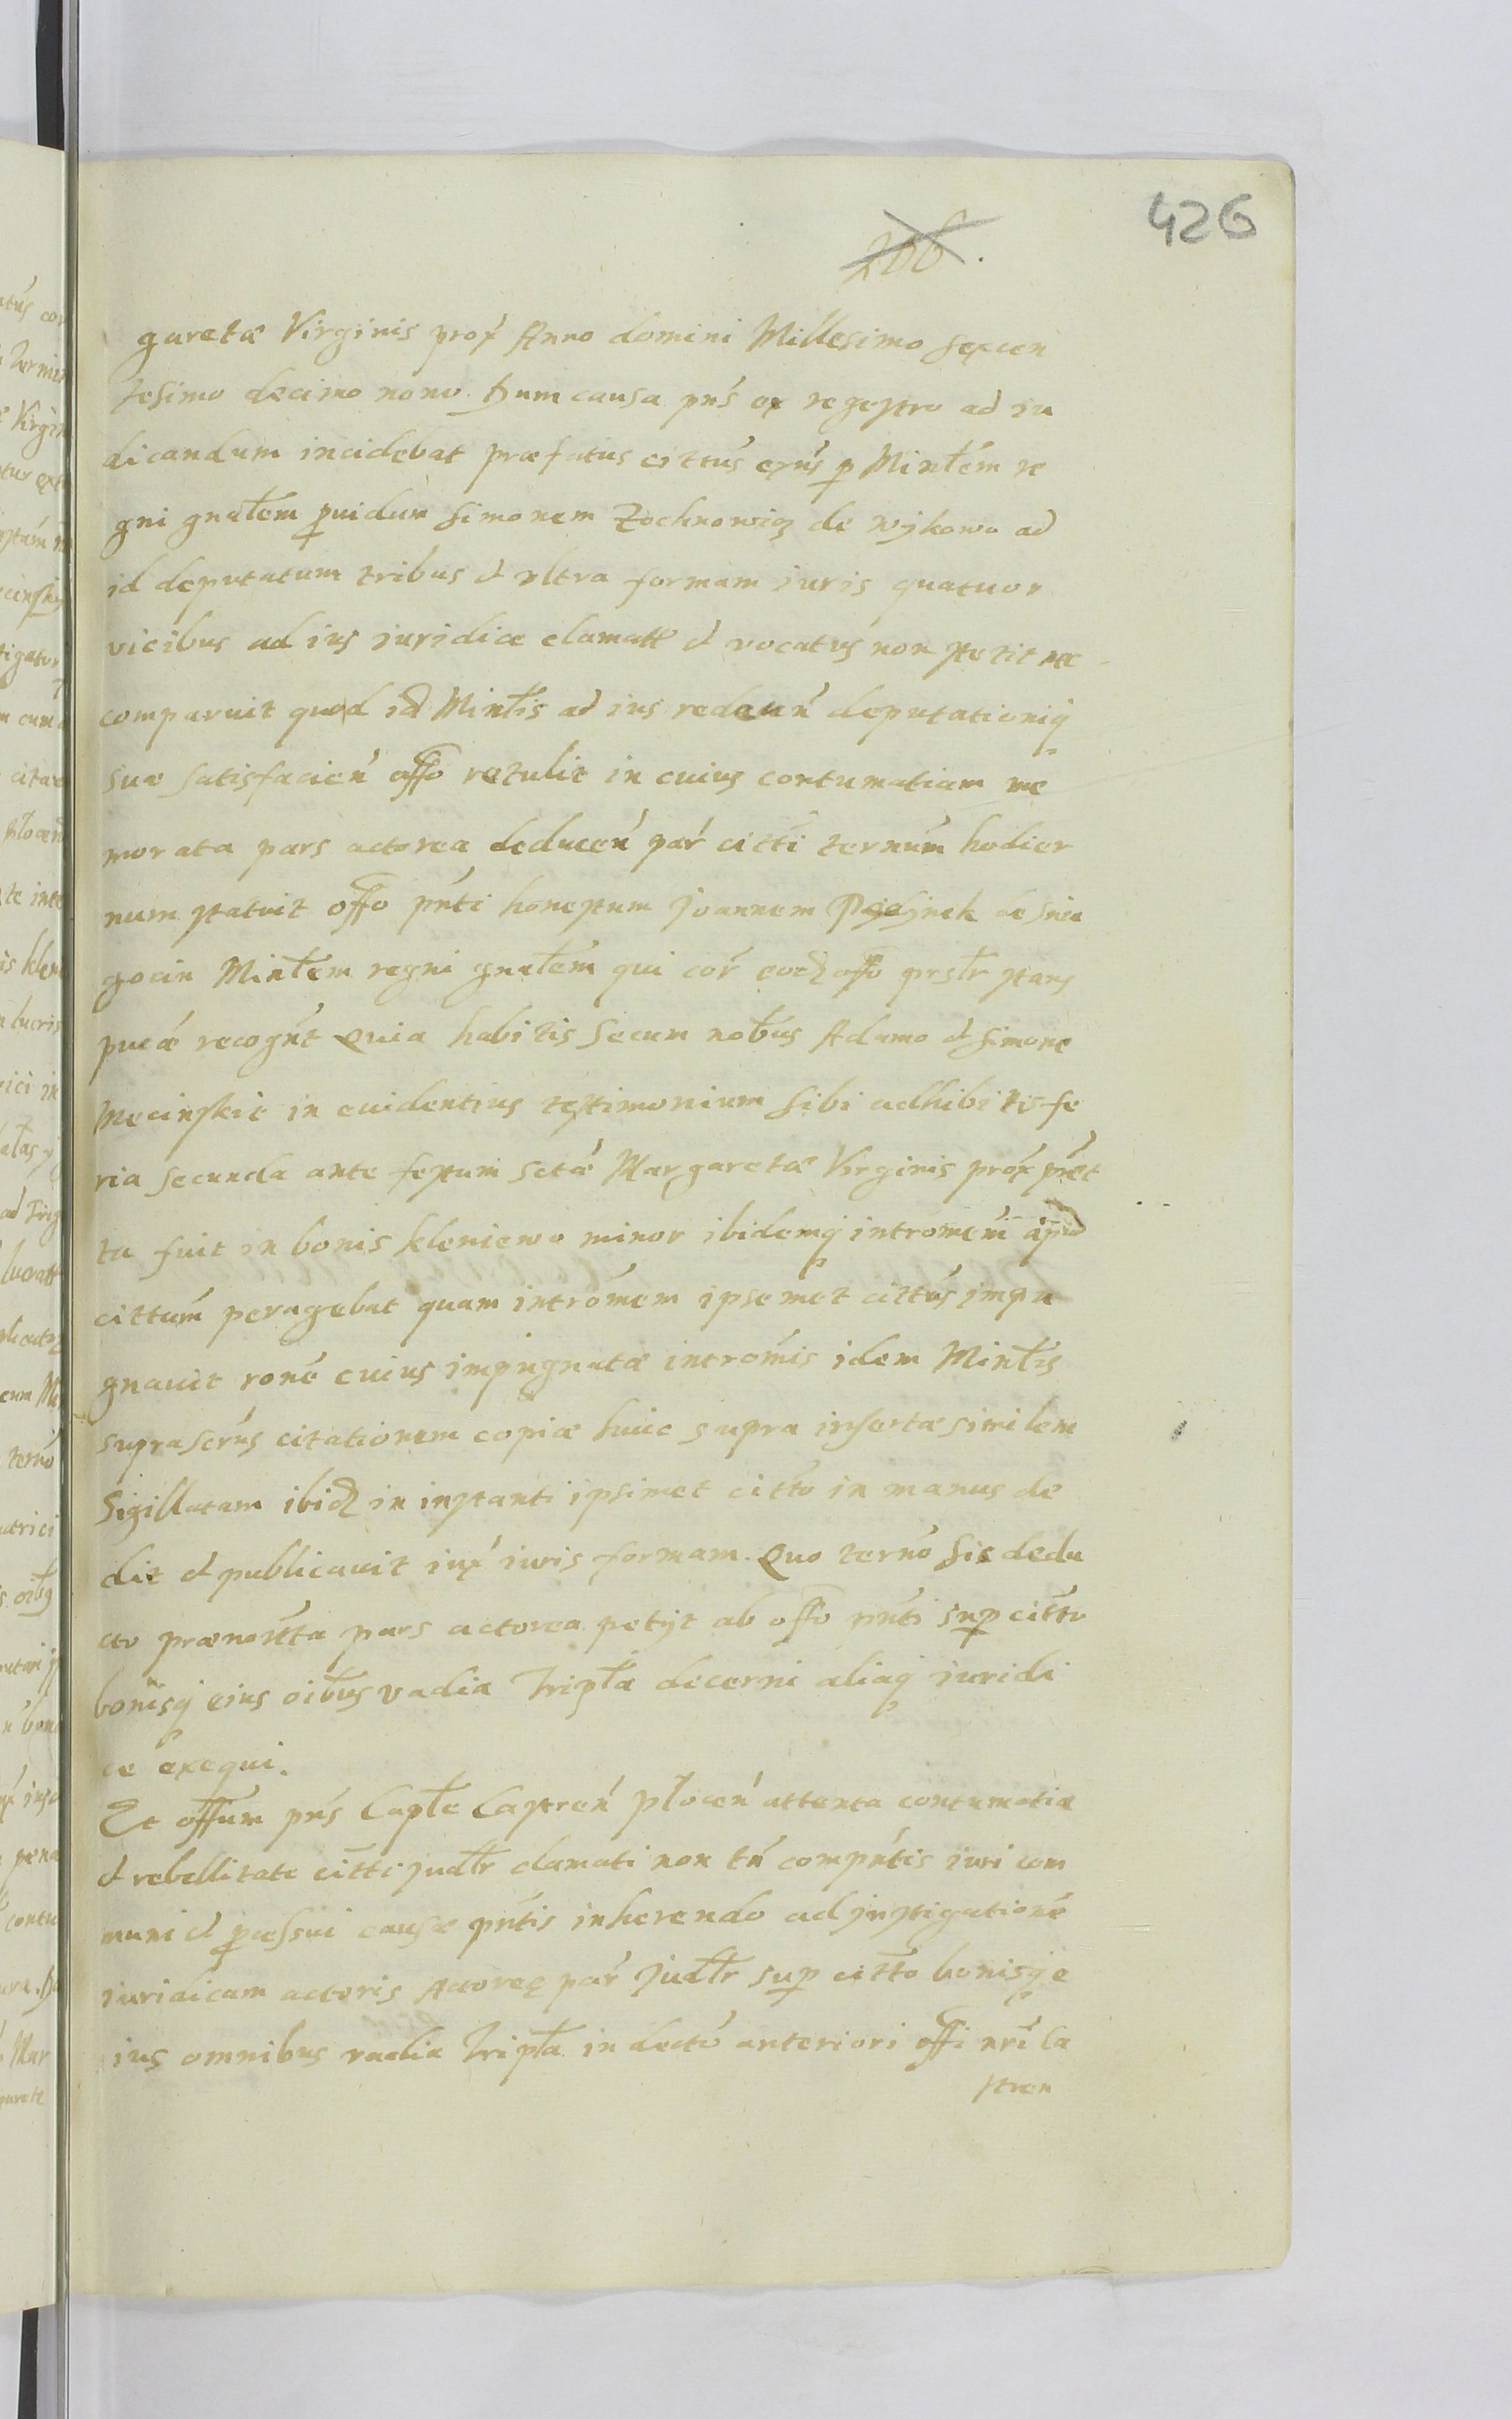 426
206.
garetæ Virginis prox Anno domini Millesimo sexcen
tesimo decimo nono. Dum causa pñs ex regestro ad iu
dicandum incidebat præfatus cittus exñs p Mintem re
gni gnalem puidum Simonem Zochnowicz de Wykowo ad
id deputatum tribus et ultra formam iuris quatuor
vicibus ad ius iuridice clamatt et vocatus non stetit nec
comparuit quod id Mintis ad ius redeuñ deputationiq
suæ satisfacieñ offo retulit in cuius contumatiam me
morata pars actorea deduceñ par citti ternum hodier
num statuit offo pnti honestum Joannem de Snie
gocin Mintem regni gnalem qui cor eod offo prslr stans
pucæ recognt Quia habitis secum nobus Adamo et Simone
Mecinskie in euidentius testimonium sibi adhibitis fe
ria secunda ante festum sctæ Margaretæ Virginis prox præt
ta fuit in bonis Kleniewo minor ibidemq intromem apud
cittum peragebat quam intromem ipsemet cittus impu
gnauit rone cuius impugnatæ intromis idem Mintis
suprascrus citationem copiæ huic supra insertæ similem
Sigillatam ibid in instanti ipsimet citto in manus de
dit et publicauit iux iuris formam. Quo terno sic dedu
cto prænotta pars actorea petyt ab offo pnti sup citto
bonisq eius oibus vadia Tripla decerni aliaq iuridi
ce exequi.
Et offum pñs Caple Castreñ Ploceñ attenta contumatia
et rebellitate citti judlr clamati non tñ compntis iuri com
muni et pcessui causæ pntis inherendo ad instigationē
iuridicam actoris Actoreę par judlr sup citto bonisq e
ius omnibus vadia Tripla in decto anteriori offi nri Ca
stren